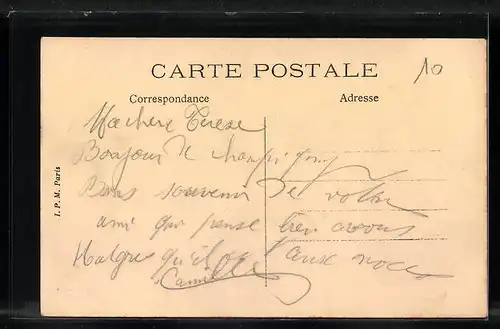 CARTE POSTALE
10
Correspondance
Adresse
Ma chère Terese
Bonjour de champigny
Bons souvenir de votre
ami qui pense bien a vous
Malgres qu'il
Camille
I. P. M. Paris